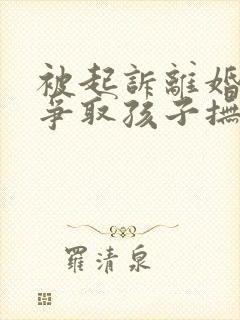 被起訴離婚
爭取孩子撫
羅清泉